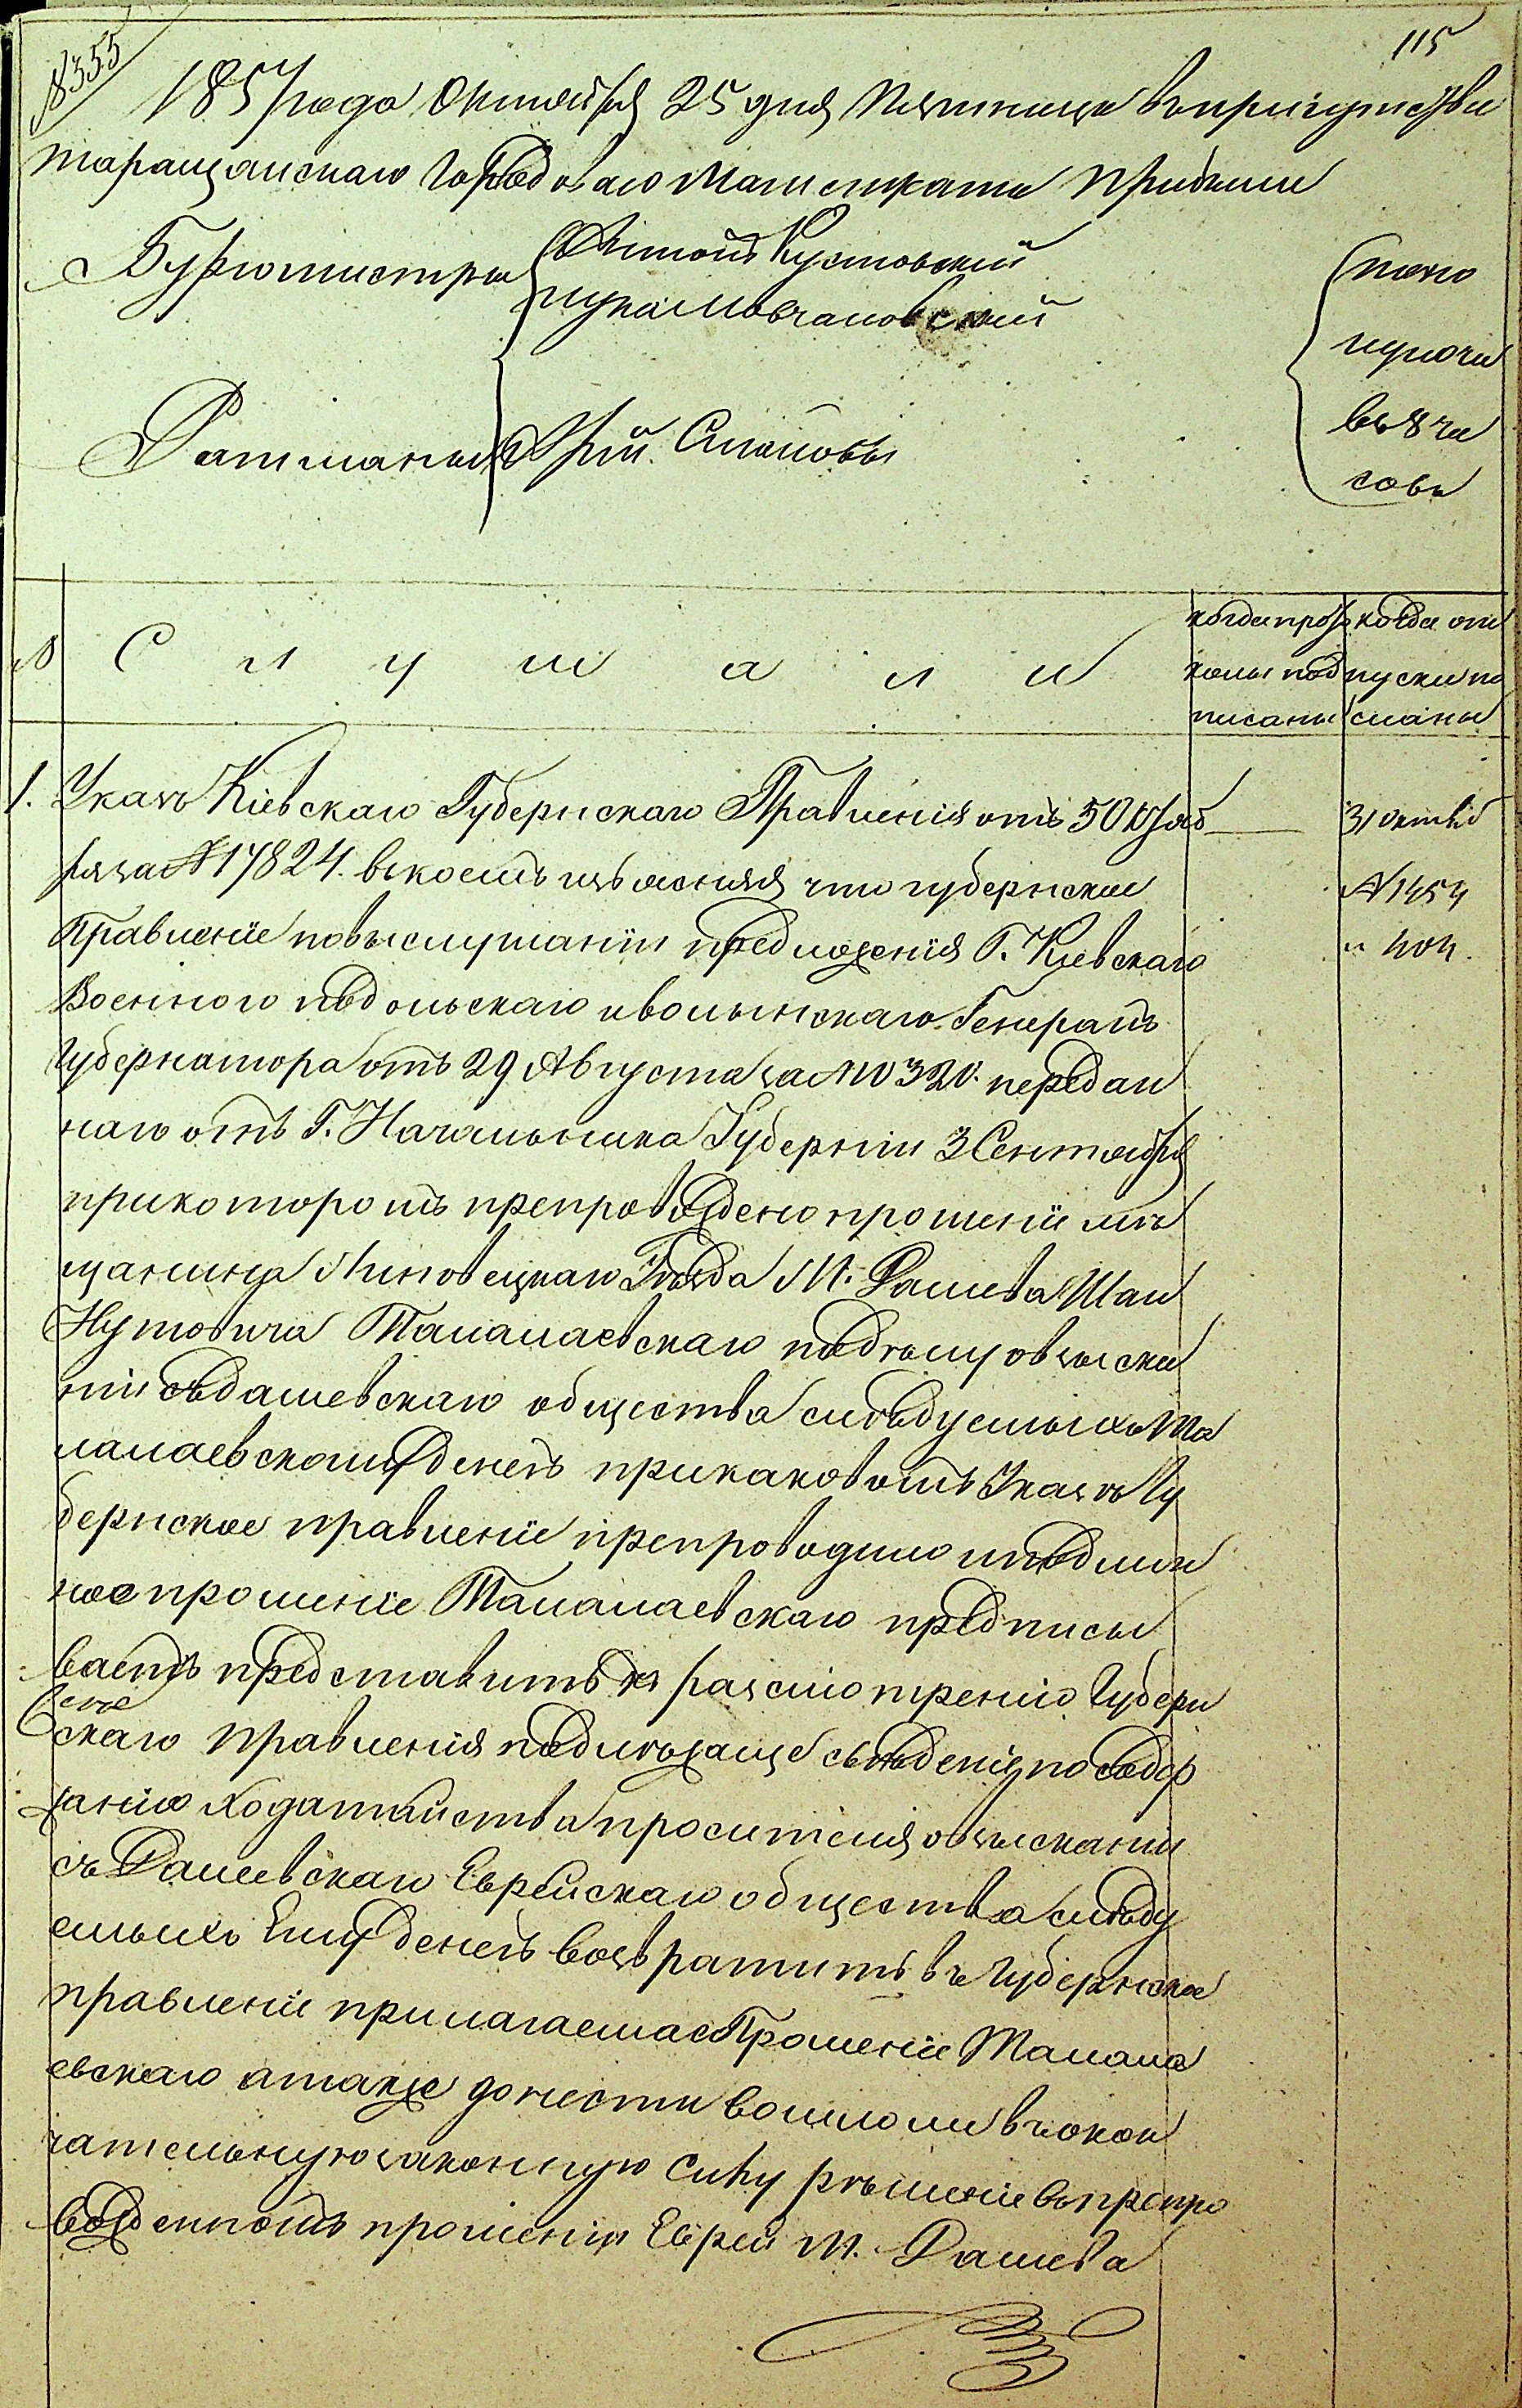 №355
115
1857 года Октября 25 дня Пятница въ присутствіи
Таращанскаго Городоваго Магистрата прибыли
Бургомистры
Антонъ Кутовскій
Лука Мовчановскій
Ратманы
Юрій
пополу
ночи
въ 8 ча
совъ
№ Слушали
когда прото
колы под
писаны
когда от
пуски по
сланы
1. Указъ Кіевскаго Губернскаго Правленія отъ 5 Октяб
ря за № 17824. въ коемъ изъясняя что губернское
Правленіе по выслушаніи предложенія Г. Кіевскаго
Военного Подольскаго и Волынскаго Генералъ
Губернатора отъ 29 Августа за № 10320. передан
наго отъ Г. Начальника Губерніи 3 Сентября
при которомъ препровождено прошеніе мѣ
щанина Липовецкаго Уѣзда М. Дашева
Нутовича Талалаевскаго подлежу о взыска
ніи съ Дашевскаго общества слѣдуемыхъ Та
лалаевскому денегъ при каковомъ Указѣ Гу
бернское правленіе препроводило и подлин
ное прошеніе Талалаевскаго предписы
ваетъ представить къ разсмотренію Губерн
скаго Правленія надлежаще свѣденіе по содер
жанію ходатайства просителя о взысканіи
съ Дашевскаго Еврейскаго общества слѣду
емыхъ Ему денегъ возвратить въ Губернское
правленіе прилагаемое Прошеніе Талала
евскаго а также донести вошло ли въ окон
чательную законную силу рѣшеніе въ препро
вожденномъ прошеніи Еврей М. Дашева
31 Октяб
№ 1454